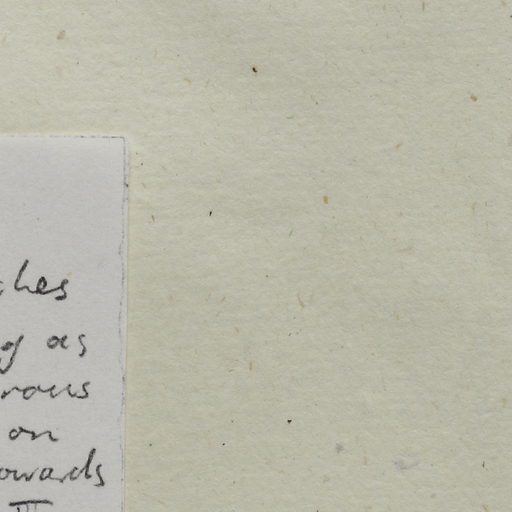 ches
g as
rous
on
owards
III